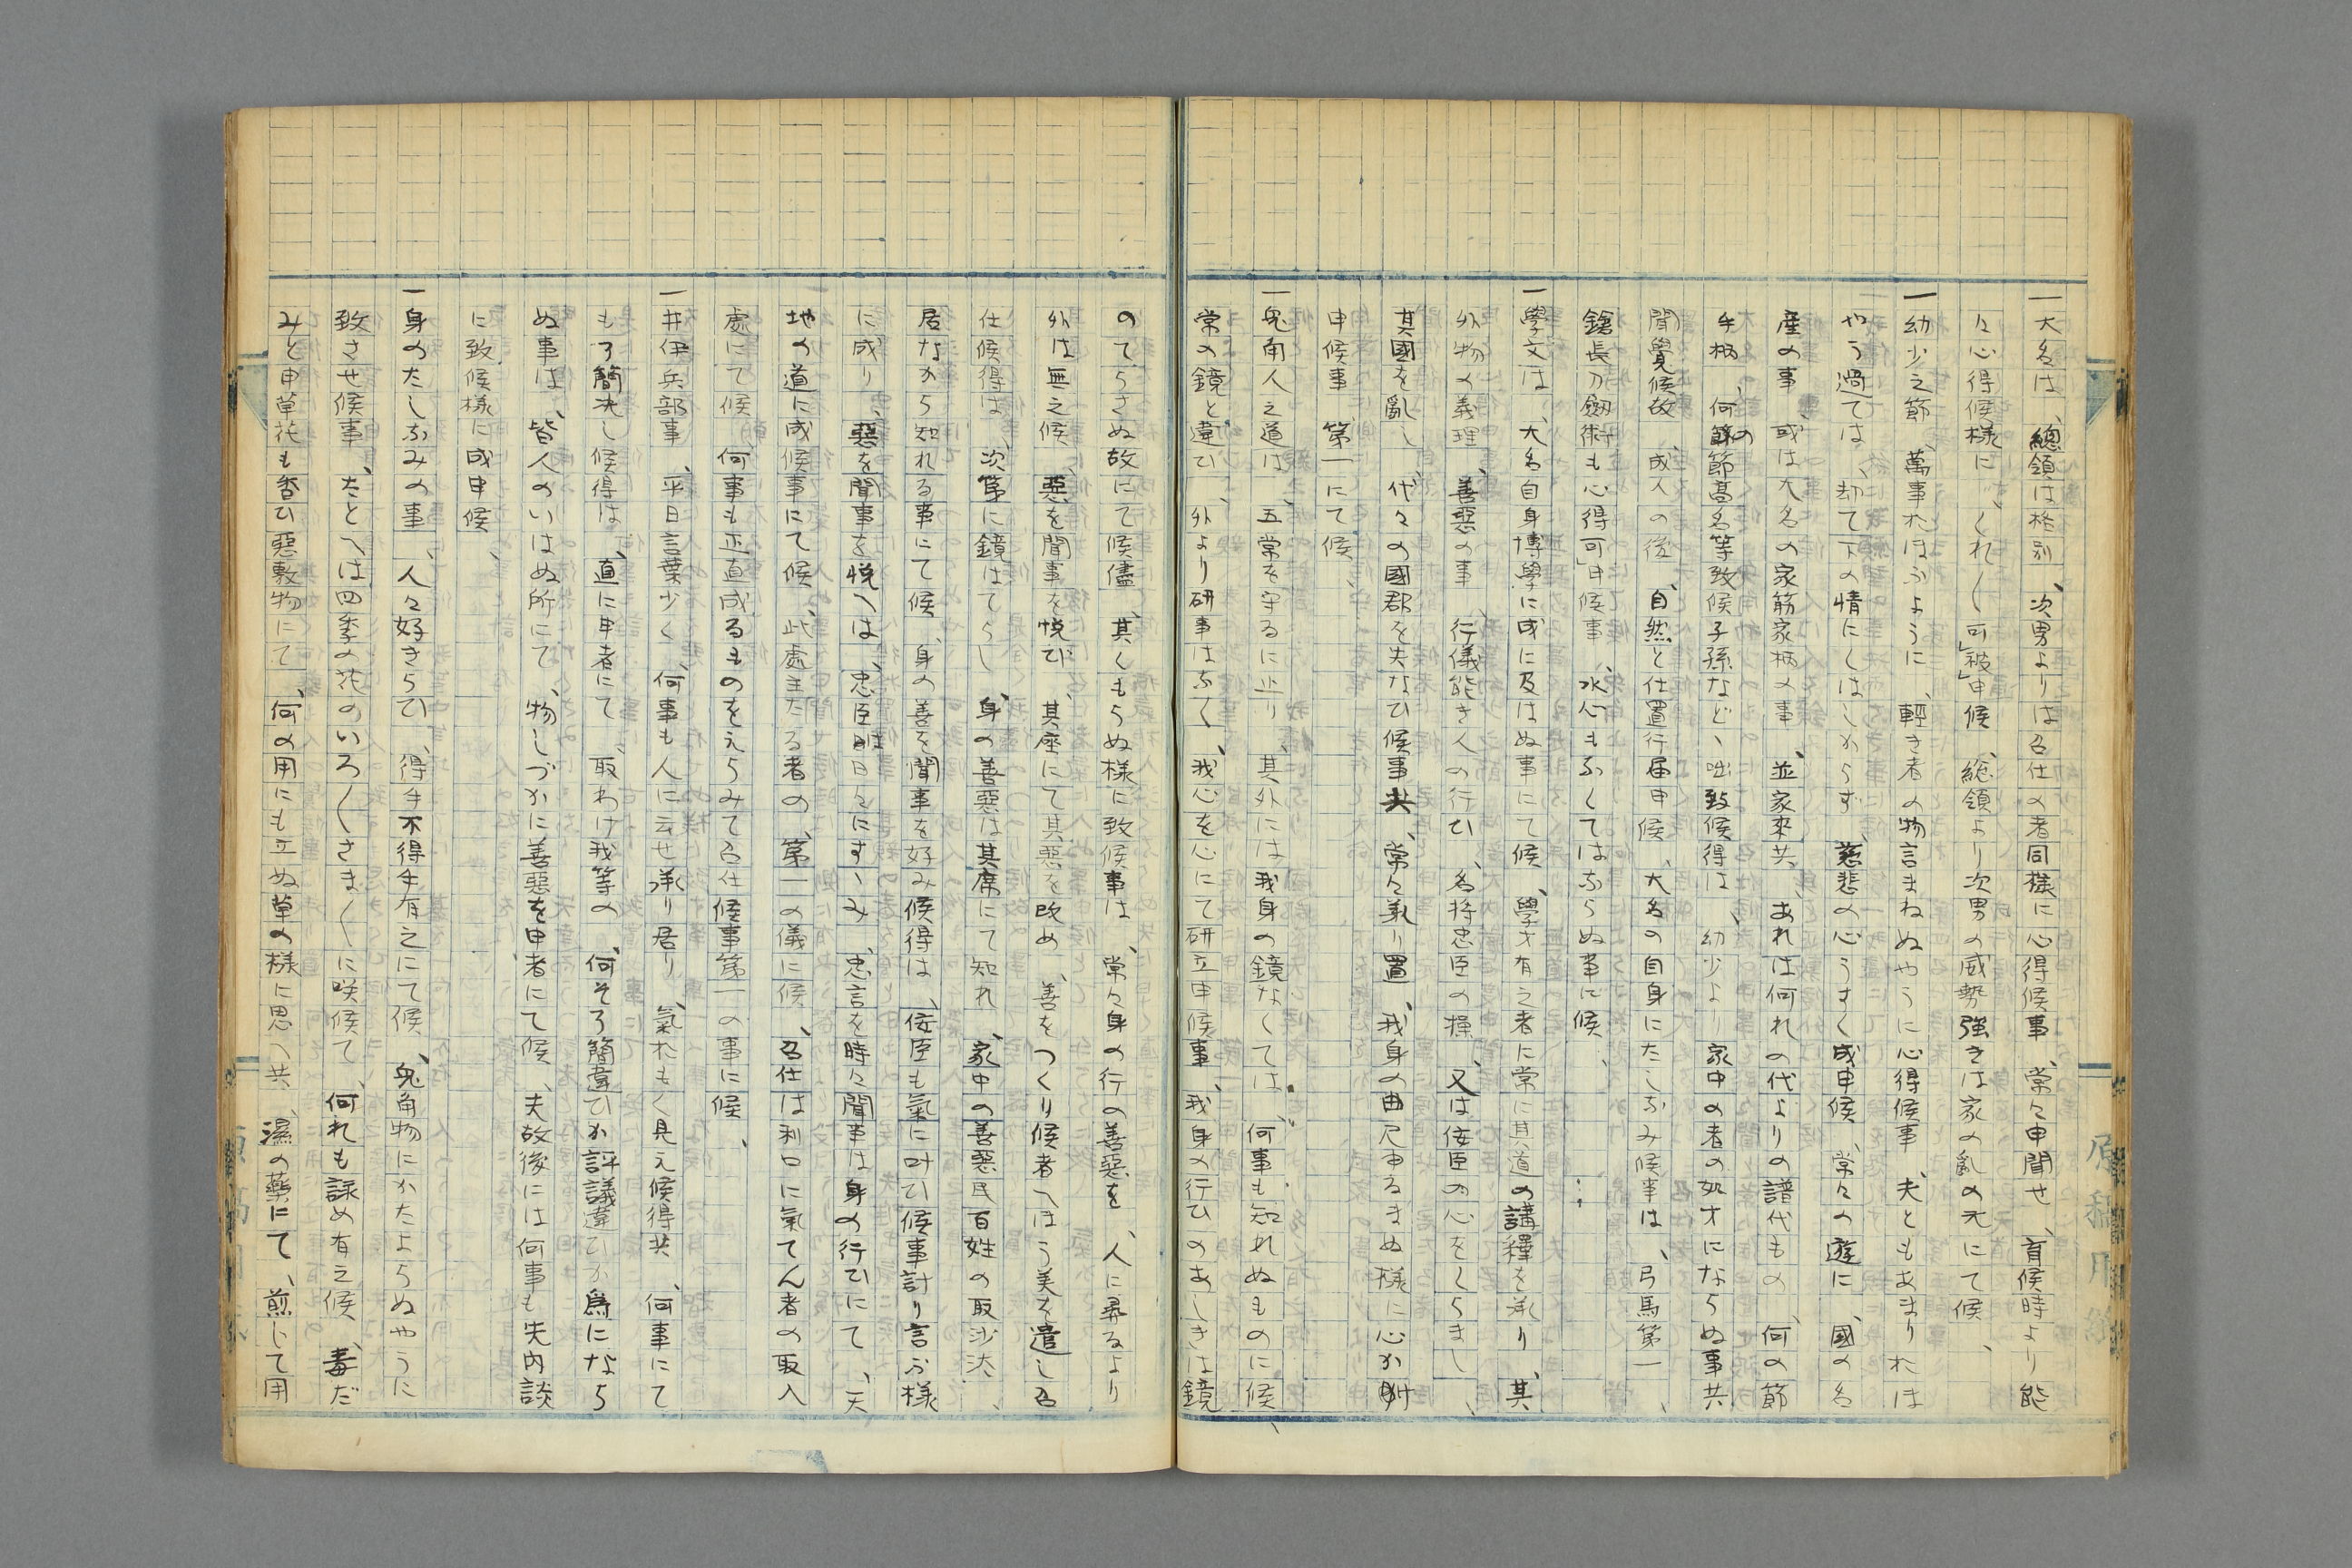 一大名は、總領は格別、次男よりは召仕の者同様に心得候事、常々申聞せ、育候時より能
々心得候様に、くれ〱可」被」申候、総領より次男の威勢強きは家の亂の元にて候、
一幼少之節、萬事おほふように、輕き者の物言まねぬやうに心得候事、夫ともあまりおほ
やう過ては、却て下の情にくはしからず、慈悲の心うすく成申候、常々の遊に、國の名
産の事、或は大名の家筋家柄の事、並家來共、あれは何れの代よりの譜代もの、何の節
手柄、何の節高名等致候子孫など、咄致候得は、幼少より、家中の者の如才にならぬ事共
聞覺候故、成人の後、自然と仕置行届申候、大名の自身にたしなみ候事は、弓馬第一、
鎗長刀劔術も心得可」申候事、水心もなくてはならぬ事に候、
一學文は、大名自身博學に成に及はぬ事にて候、學才有之者に常に其道の講釋を承り、其
外物の義理、善惡の事、行儀能き人の行ひ、名将忠臣の操、又は侫臣の心をくらまし、
其國を亂し、代々の國郡を失なひ候事共、常々承り置、我身の曲尺申るまぬ様に心か
申候事、第一にて候、
一兎角人之道は、五常を守るに止り、其外には我身の鏡なくては、何事も知れぬものに候、
常の鏡と違ひ、外より研事はなく、我心を心にて研立申候事、我身の行ひのあしきは鏡
のてらさぬ故にて候儘、其くもらぬ様に致候事は、常々身の行の善惡を、人に尋るより
外は無之候、惡を聞事を悦び、其座にて其惡を改め、善をつくり候者へはう美を遣し召
仕候得は、次第に鏡はてらし、身の善惡は其席にて知れ、家中の善惡民百姓の取沙汰、
居なから知れる事にて候、身の善を聞事を好み候得は、侫臣も氣に叶ひ候事計り言ふ様
に成り、惡を聞事を悦へは、忠臣日々にすゝみ、忠言を時々聞事は身の行ひにて、天
地の道に成候事にて候、此處主たる者の、第一の儀に候、召仕は利口に氣てん者の取入
處にて候、何事も正直成るものをえらみて召仕候事第一の事に候、
一井伊兵部事、平日言葉少く、何事も人に云せ承り居り、氣おもく見え候得共、何事にて
もろ簡决し候得は、直に申者にて、取わけ我等の、何そろ簡違ひか評議違ひか爲になら
ぬ事は、皆人のいはぬ所にて、物しづかに善惡を申者にて候、夫故後には何事も先内談
に致候様に成申候、
一身のたしなみの事、人々好きらひ、得手不得手有之にて候、兎角物にかたよらぬやうに
致させ候事、たとへは四季の花のいろ〱さま〱に咲候て、何れも詠め有之候、毒だ
みと申草花も香ひ惡敷物にて、何の用にも立ぬ草の様に思へ共、濕の藥にて、煎じて用